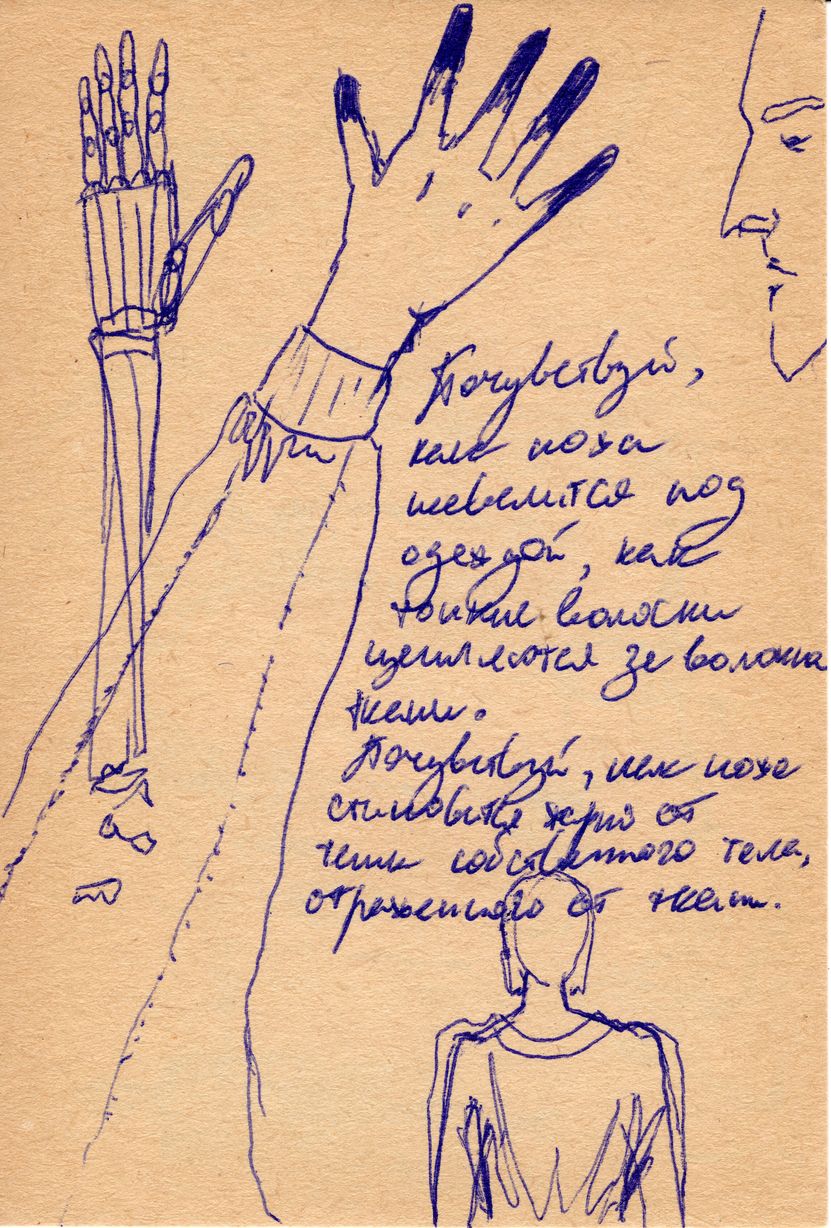 Почувствуй,
как кожа
шевелится под
одеждой, как
тонкие волоски
цепляются за волокна
ткани.
Почувствуй, как коже
становится жарко от
тепла собственного тела,
отраженного от ткани.